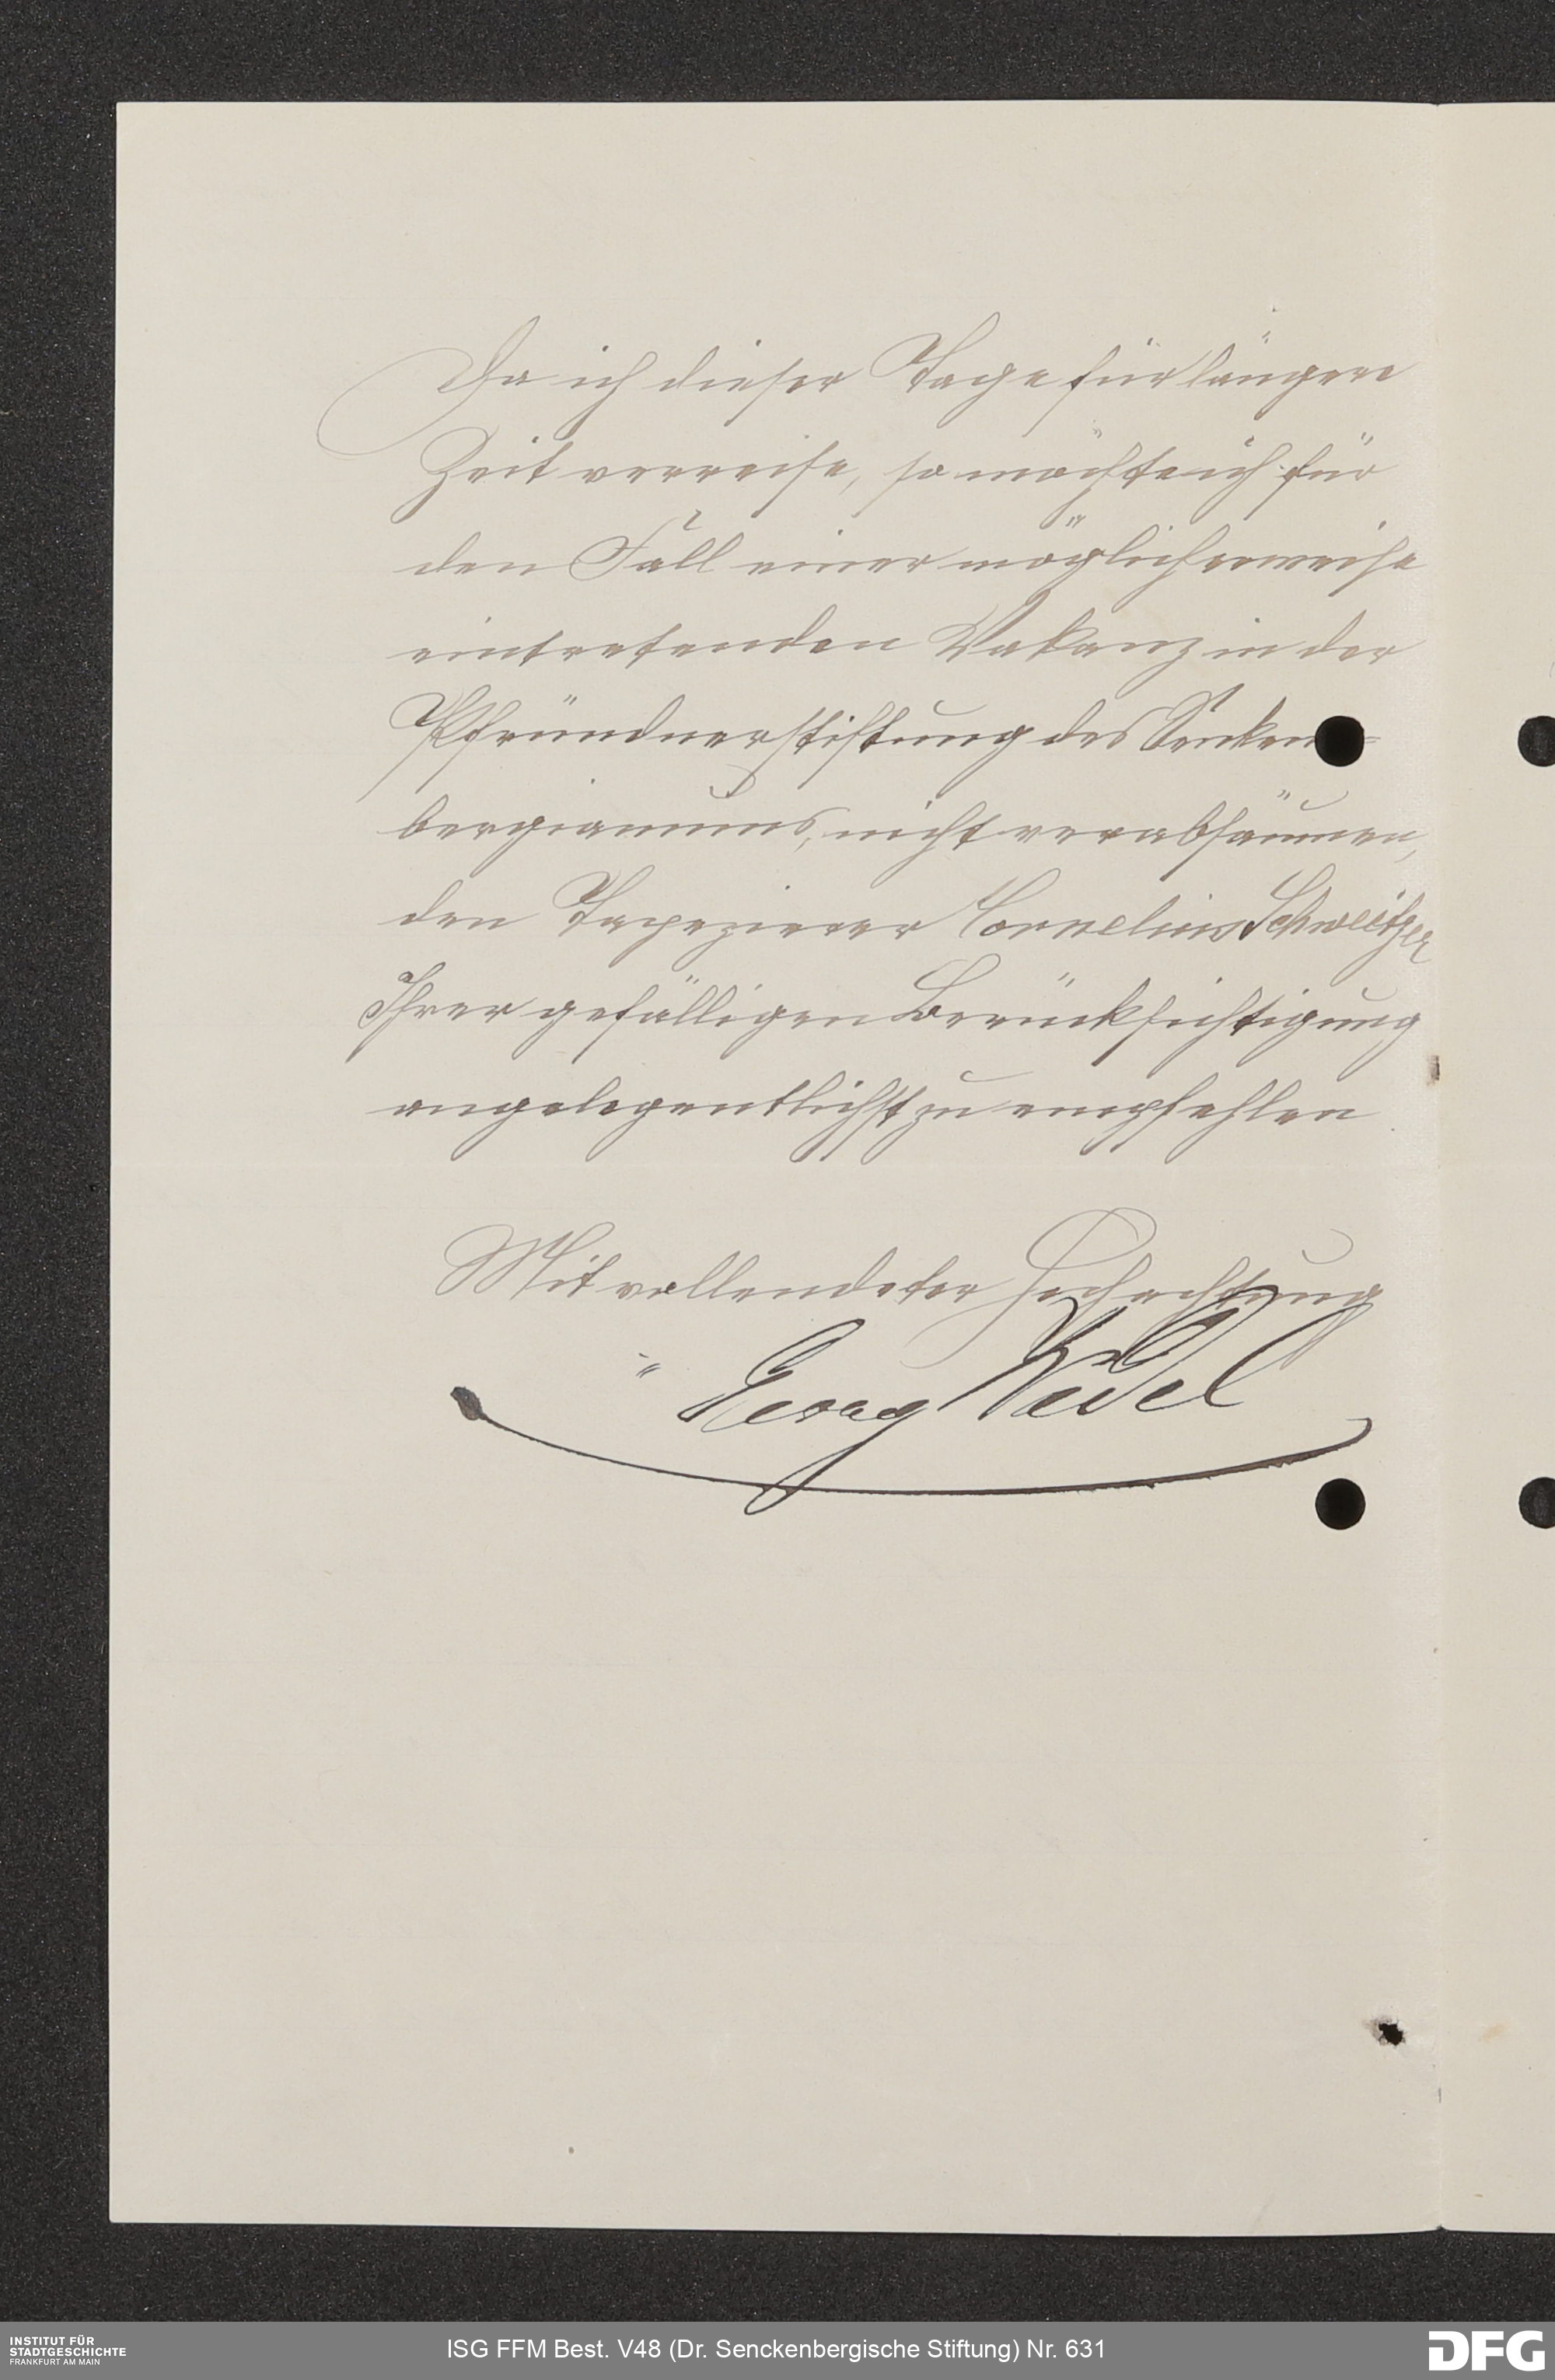 Da ich dieser Tage für längere
Zeit verreise, so möchte ich für
den Fall einer möglicherweise
eintretenden Vakanz in der
Pfründnerstiftung des Senken=
bergianums, nicht verabsäumen,
den Tapezierer Cornelius Schweitzer
Ihrer gefälligen Berücksichtigung
angelegentlichst zu empfehlen.
Mit vollendeter Hochachtung
Georg
INSTITUT FÜR
STADTGESCHICHTE
FRANKFURT AM MAIN
ISG FFM Best. V48 (Dr. Senckenbergische Stiftung) Nr. 631
DFG